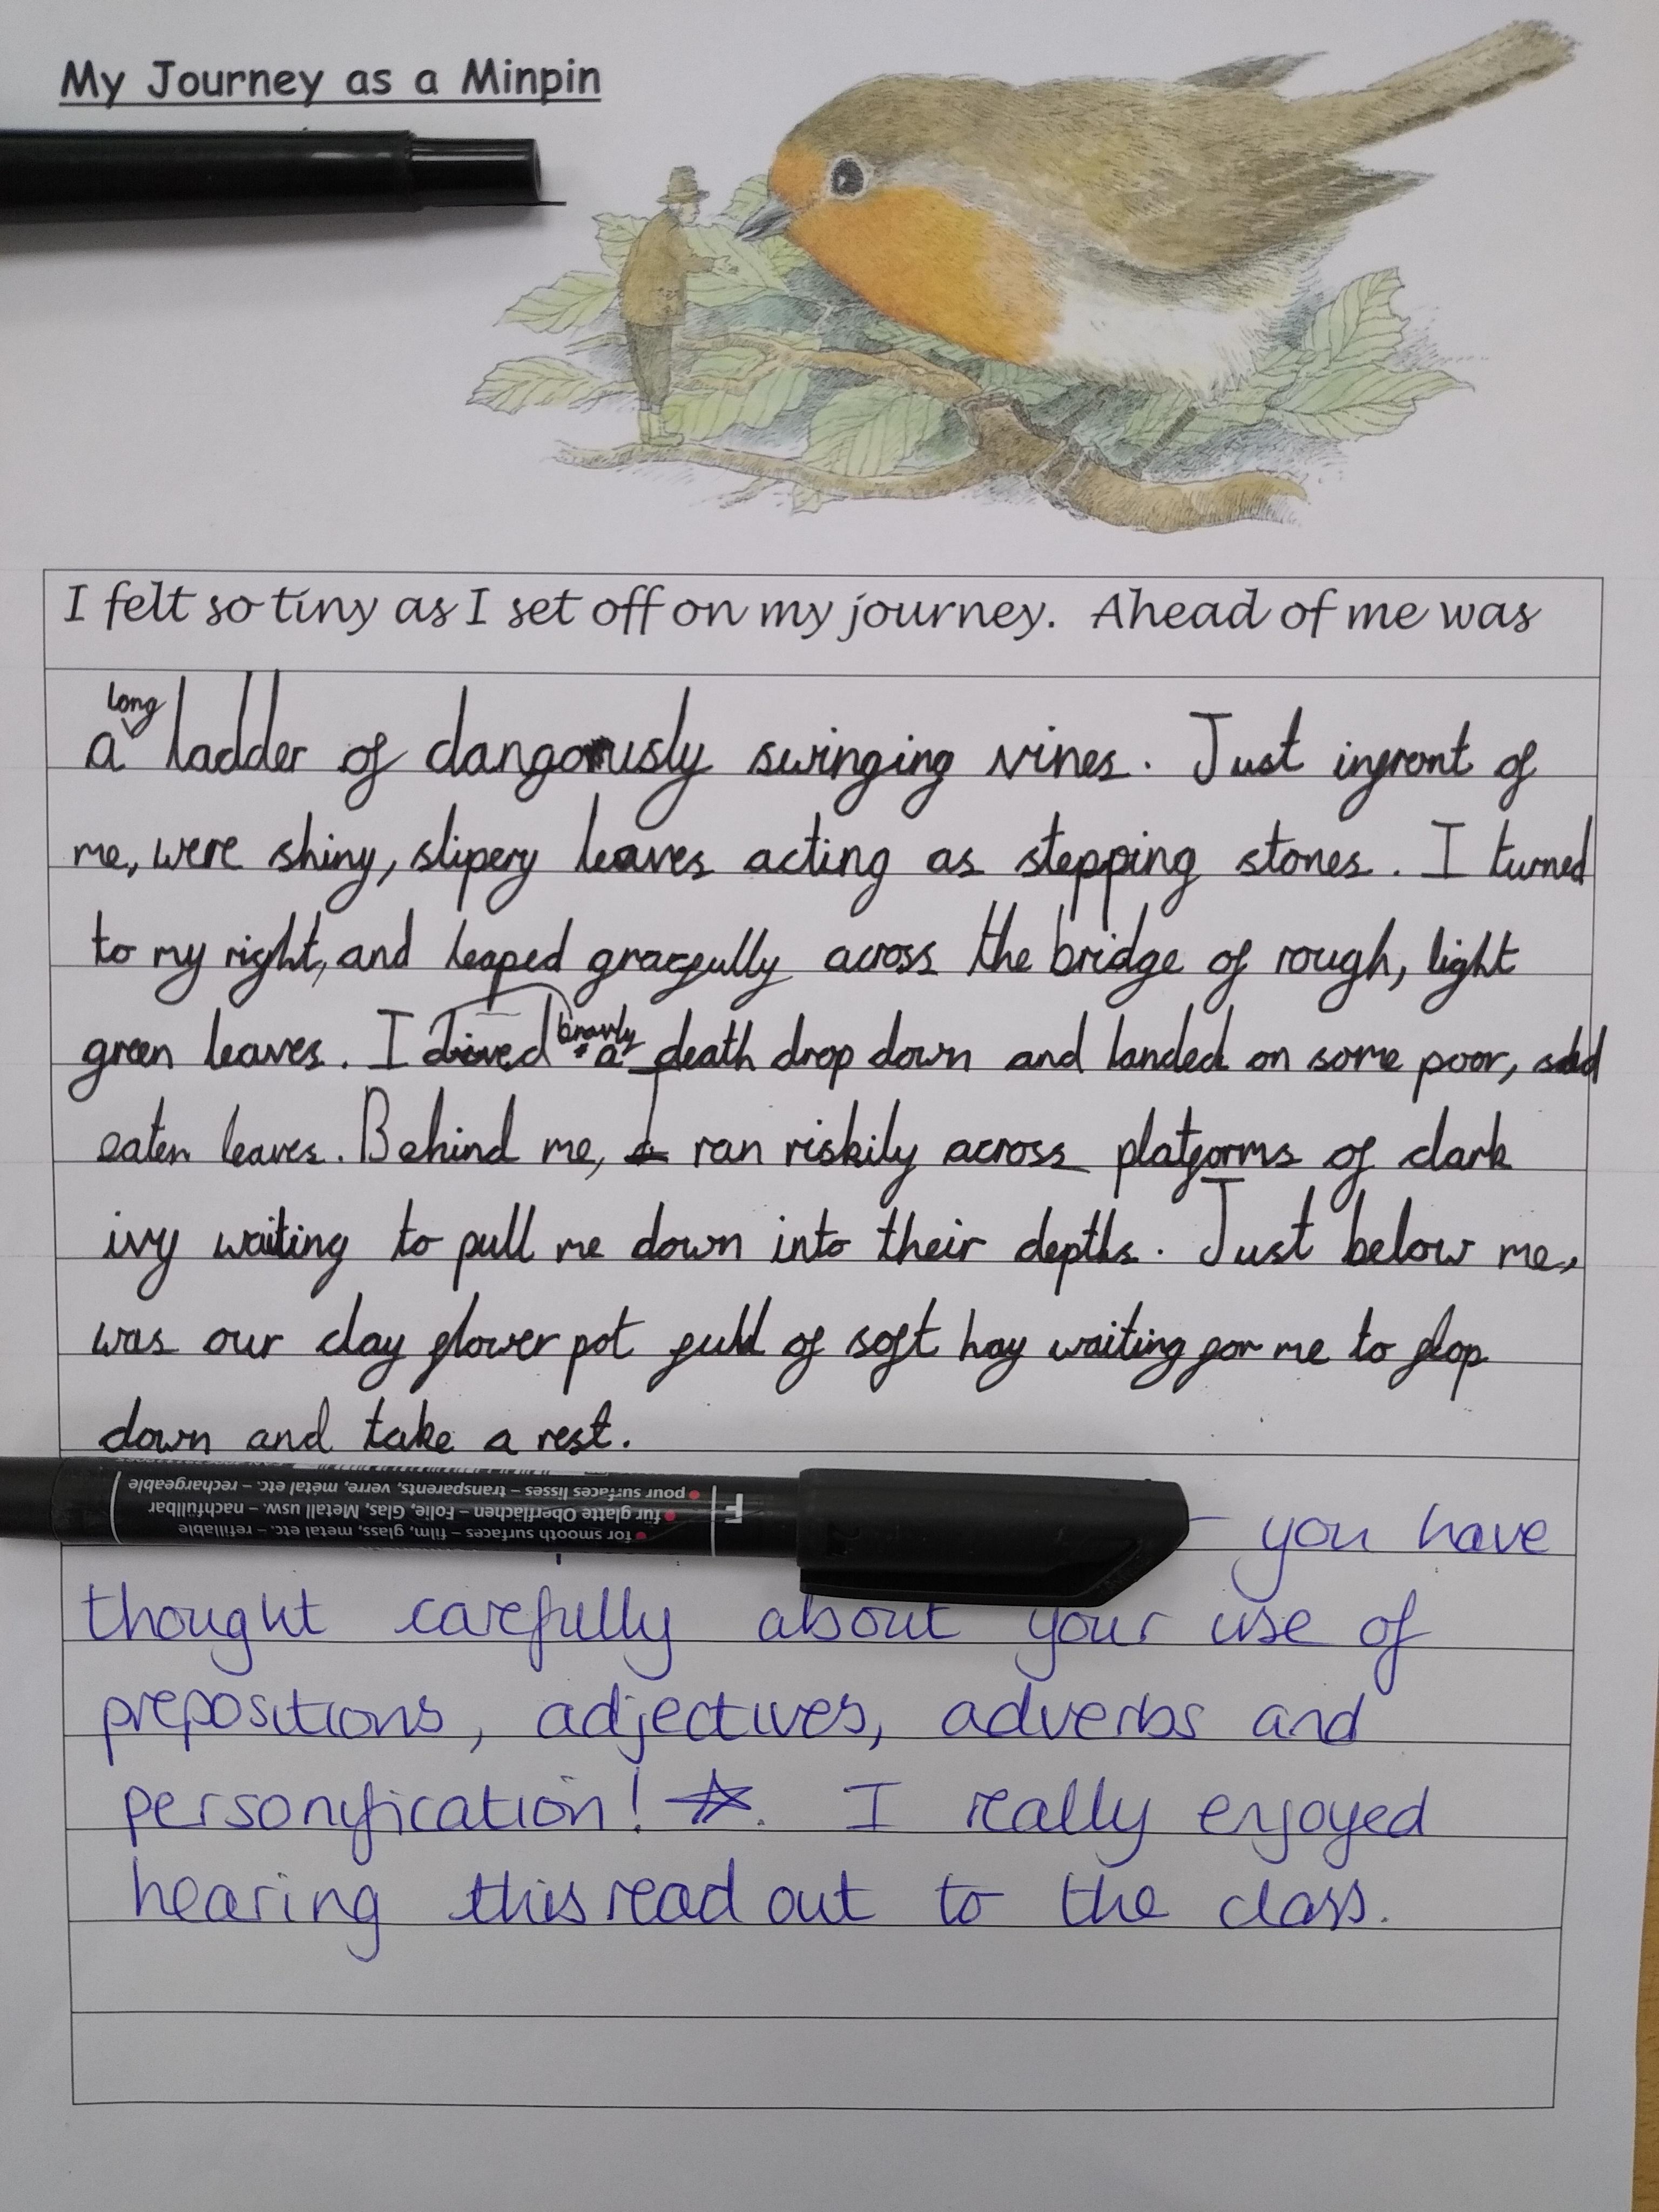 My Journey as a Minpin
I felt so tiny as I set off on my journey. Ahead of me was
long
a ladder of dangorusly swinging vines. Just infront of
me, were shiny, slipery leaves acting as stepping stones. I turned
to my right, and leaped gracfully across the bridge of rough, light
green leaves. I dived bravly a death drop down and landed on some poor, sad
eaten leaves. Behind me, I ran riskily across platforms of dark
ivy waiting to pull me down into their depths. Just below me,
was our clay flower pot full of soft hay waiting for me to flop
down and take a rest.
pour surfaces lisses – transparents, verre, métal etc. – rechargeable
für glatte Oberflächen – Folie, Glas, Metall usw. – nachfüllbar
for smooth surfaces – film, glass, metal etc. – refillable
F
– you have
thought carefully about your use of
prepositions, adjectives, adverbs and
personification! I really enjoyed
hearing this read out to the class.